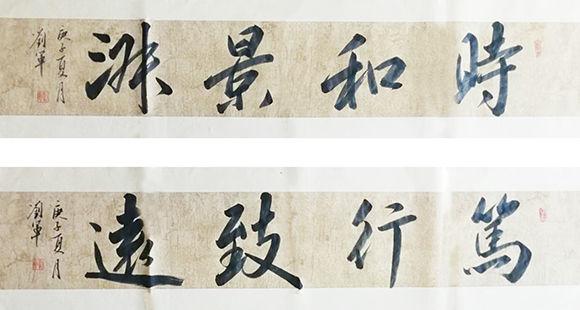 時和景淑
庚子夏月
劉軍
篤行致遠
庚子夏月
劉軍